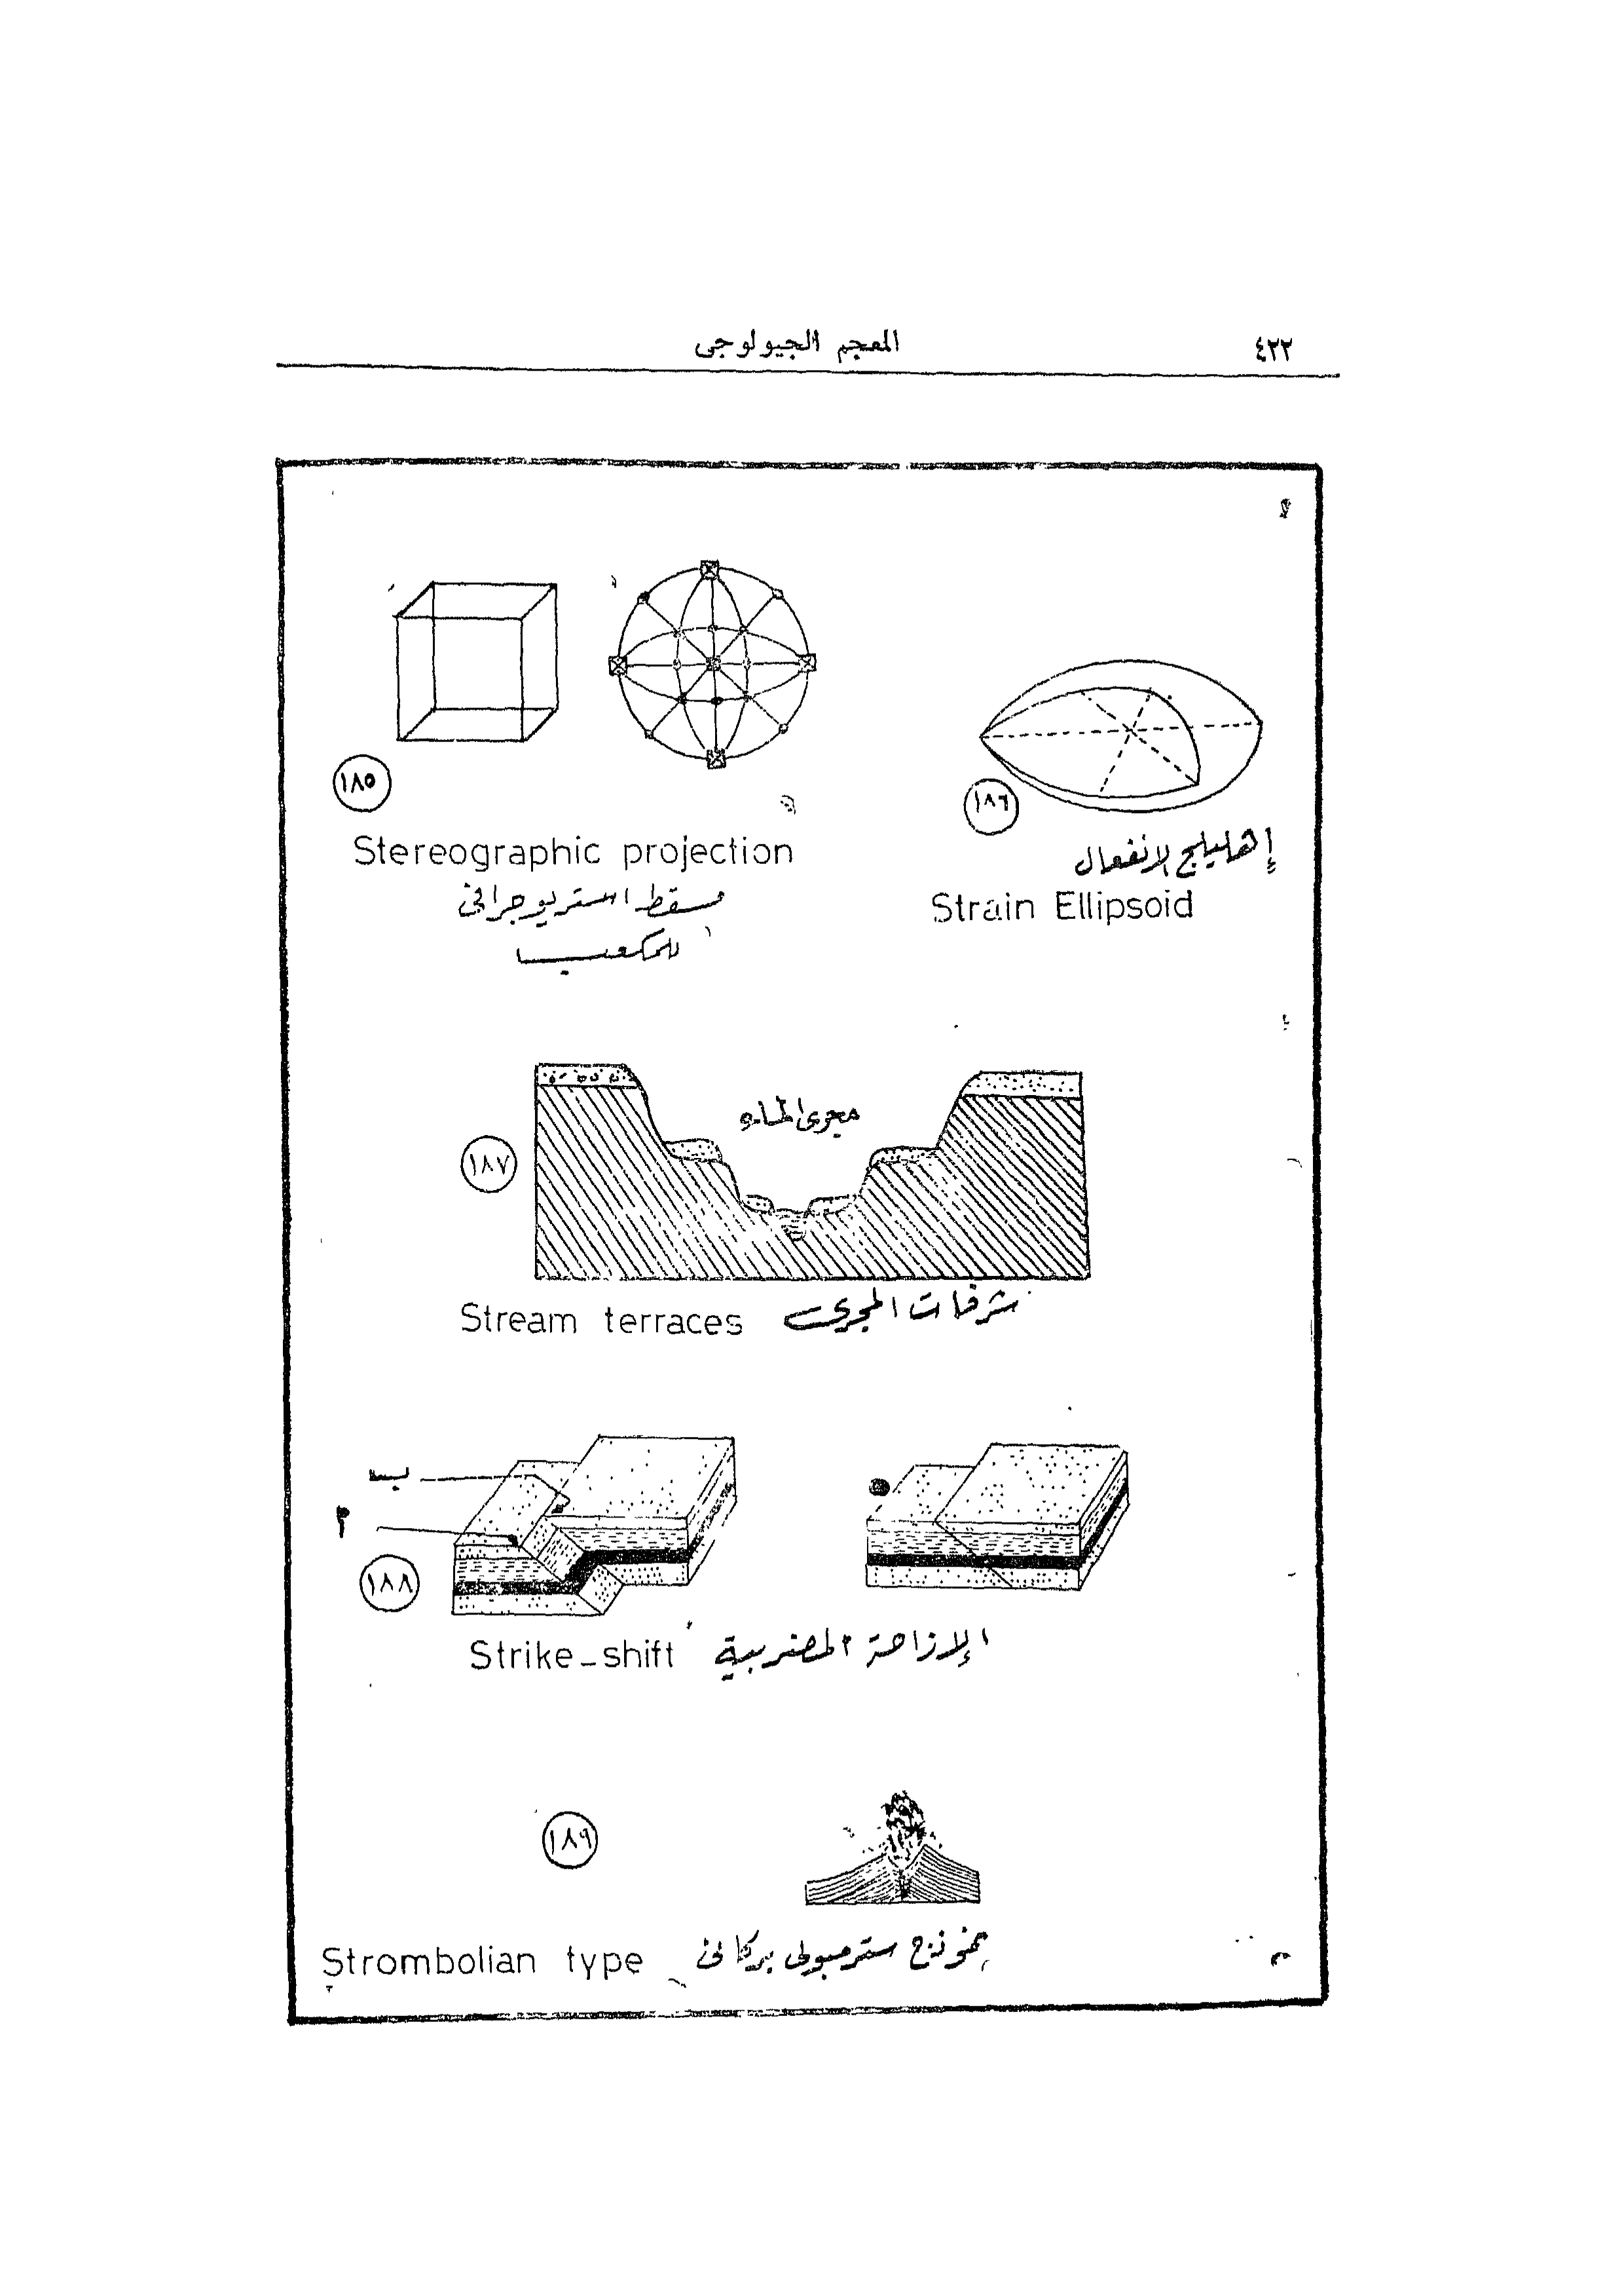 المعجم الجيولوجى ٤٢٢
١٨٥
Stereographic projection
مسقط استريوجرافى
للمكعب
١٨٦
إهليلج الانفعال
Strain Ellipsoid
مجرى الماء
١٨٧
Stream terraces شرفات المجرى
ب
١٨٨
Strike_shift الإزاحة المضربية
١٨٩
Strombolian type نموذج سترمبولى بركانى